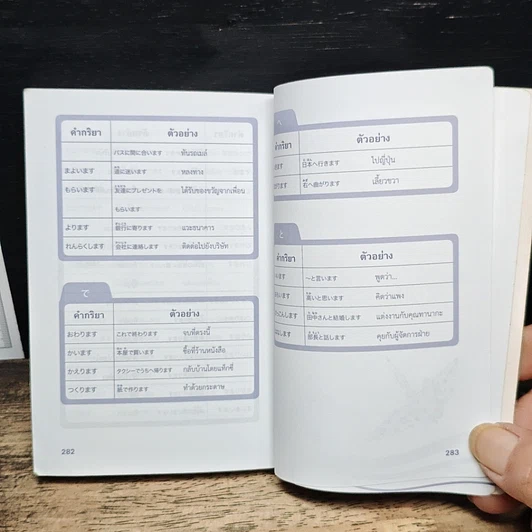 คำกริยา ตัวอย่าง
バスに間に合います ทันรถเมล์
まよいます 道に迷います หลงทาง
もらいます 友達にプレゼントを ได้รับของขวัญจากเพื่อน
もらいます
よります 銀行に寄ります แวะธนาคาร
れんらくします 会社に連絡します ติดต่อไปยังบริษัท
で
คำกริยา ตัวอย่าง
おわります これで終わります จบที่ตรงนี้
かいます 本屋で買います ซื้อที่ร้านหนังสือ
かえります タクシーでうちへ帰ります กลับบ้านโดยแท็กซี่
つくります 紙で作ります ทำด้วยกระดาษ
282
กริยา ตัวอย่าง
ます 日本へ行きます ไปญี่ปุ่น
ます 右へ曲がります เลี้ยวขวา
と
คำกริยา ตัวอย่าง
います ～と言います พูดว่า...
います 高いと思います คิดว่าแพง
こんします 田中さんと結婚します แต่งงานกับคุณทานากะ
します 部長と話します คุยกับผู้จัดการฝ่าย
283